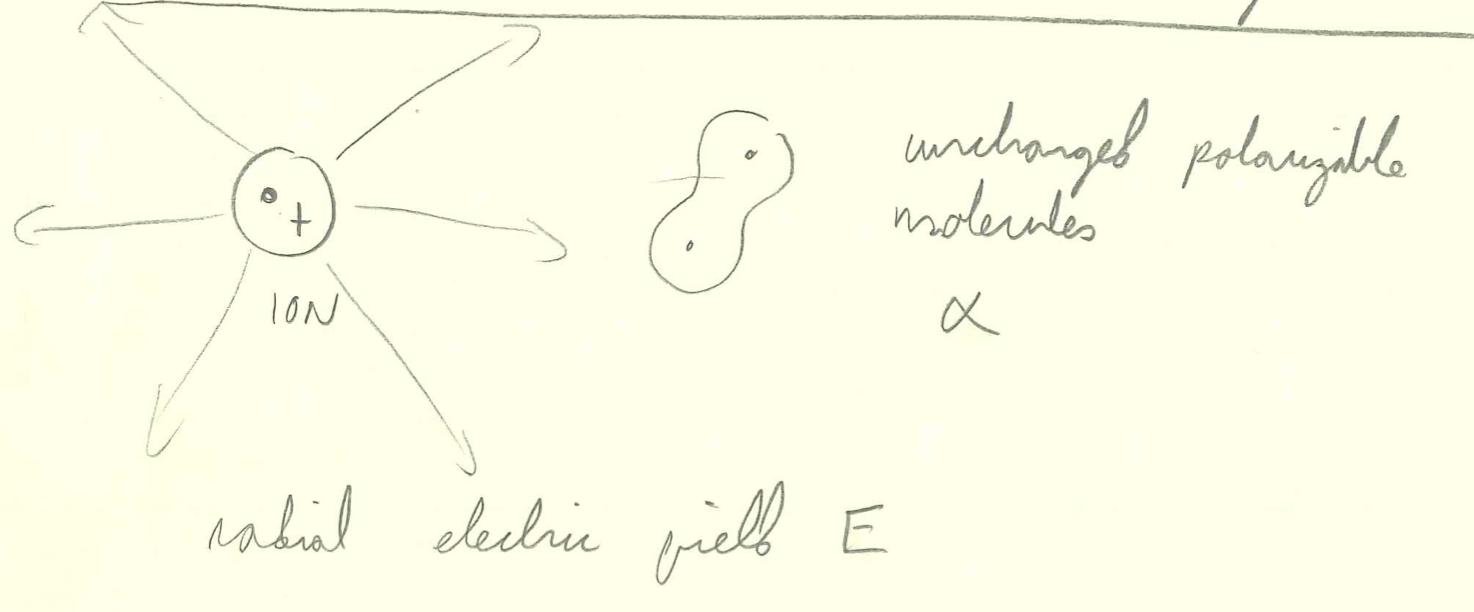 +
ION
uncharged polarizable
molecules
α
radial electric field E